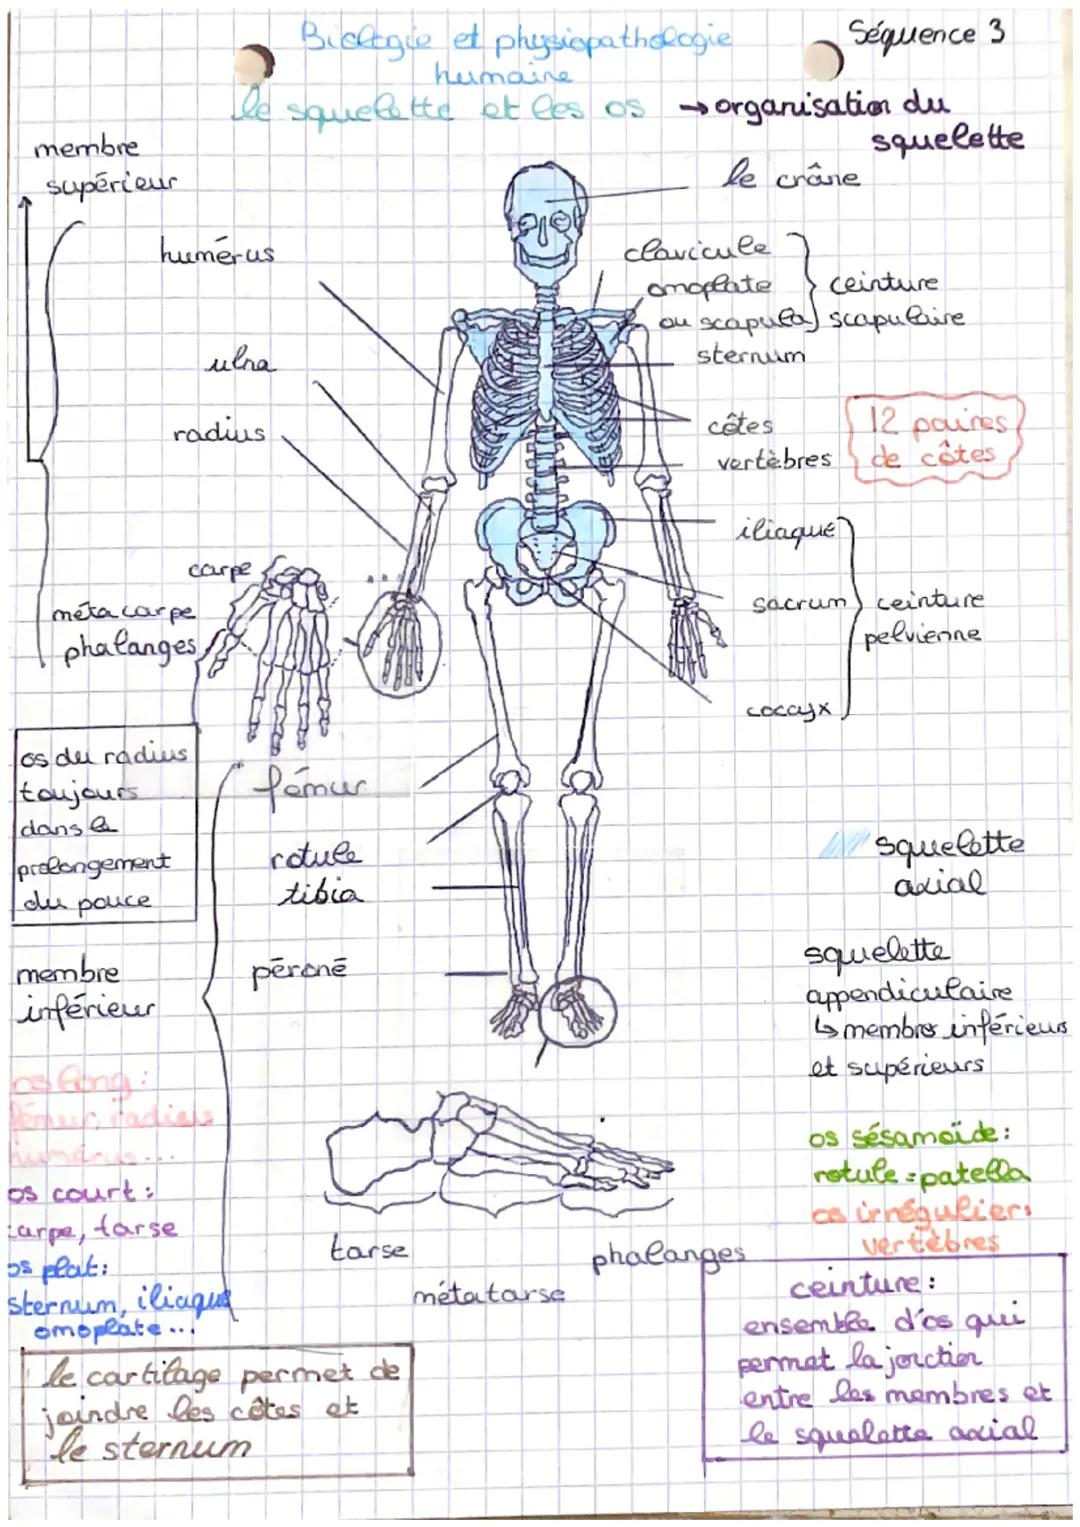 Biologie et physiopathologie
humaine
Séquence 3
le squelette et les os → organisation du
squelette
membre
supérieur
le crâne
humérus
clavicule
omoplate
ou scapula
ceinture
scapulaire
sternum
ulna
radius
côtes
vertèbres
12 paires
de côtes
iliaque
sacrum
coccyx
ceinture
pelvienne
carpe
métacarpe
phalanges
os du radius
toujours
dans le
prolongement
du pouce
fémur
rotule
tibia
péroné
membre
inférieur
squelette
axial
squelette
appendiculaire
↳ membres inférieurs
et supérieurs
os long :
fémur, radius
humérus...
os court :
carpe, tarse
os plat :
sternum, iliaque
omoplate...
os sésamoïde :
rotule = patella
os irrégulier :
vertèbres
tarse
métatarse
phalanges
le cartilage permet de
joindre les côtes et
le sternum
ceinture :
ensemble d'os qui
permet la jonction
entre les membres et
le squelette axial